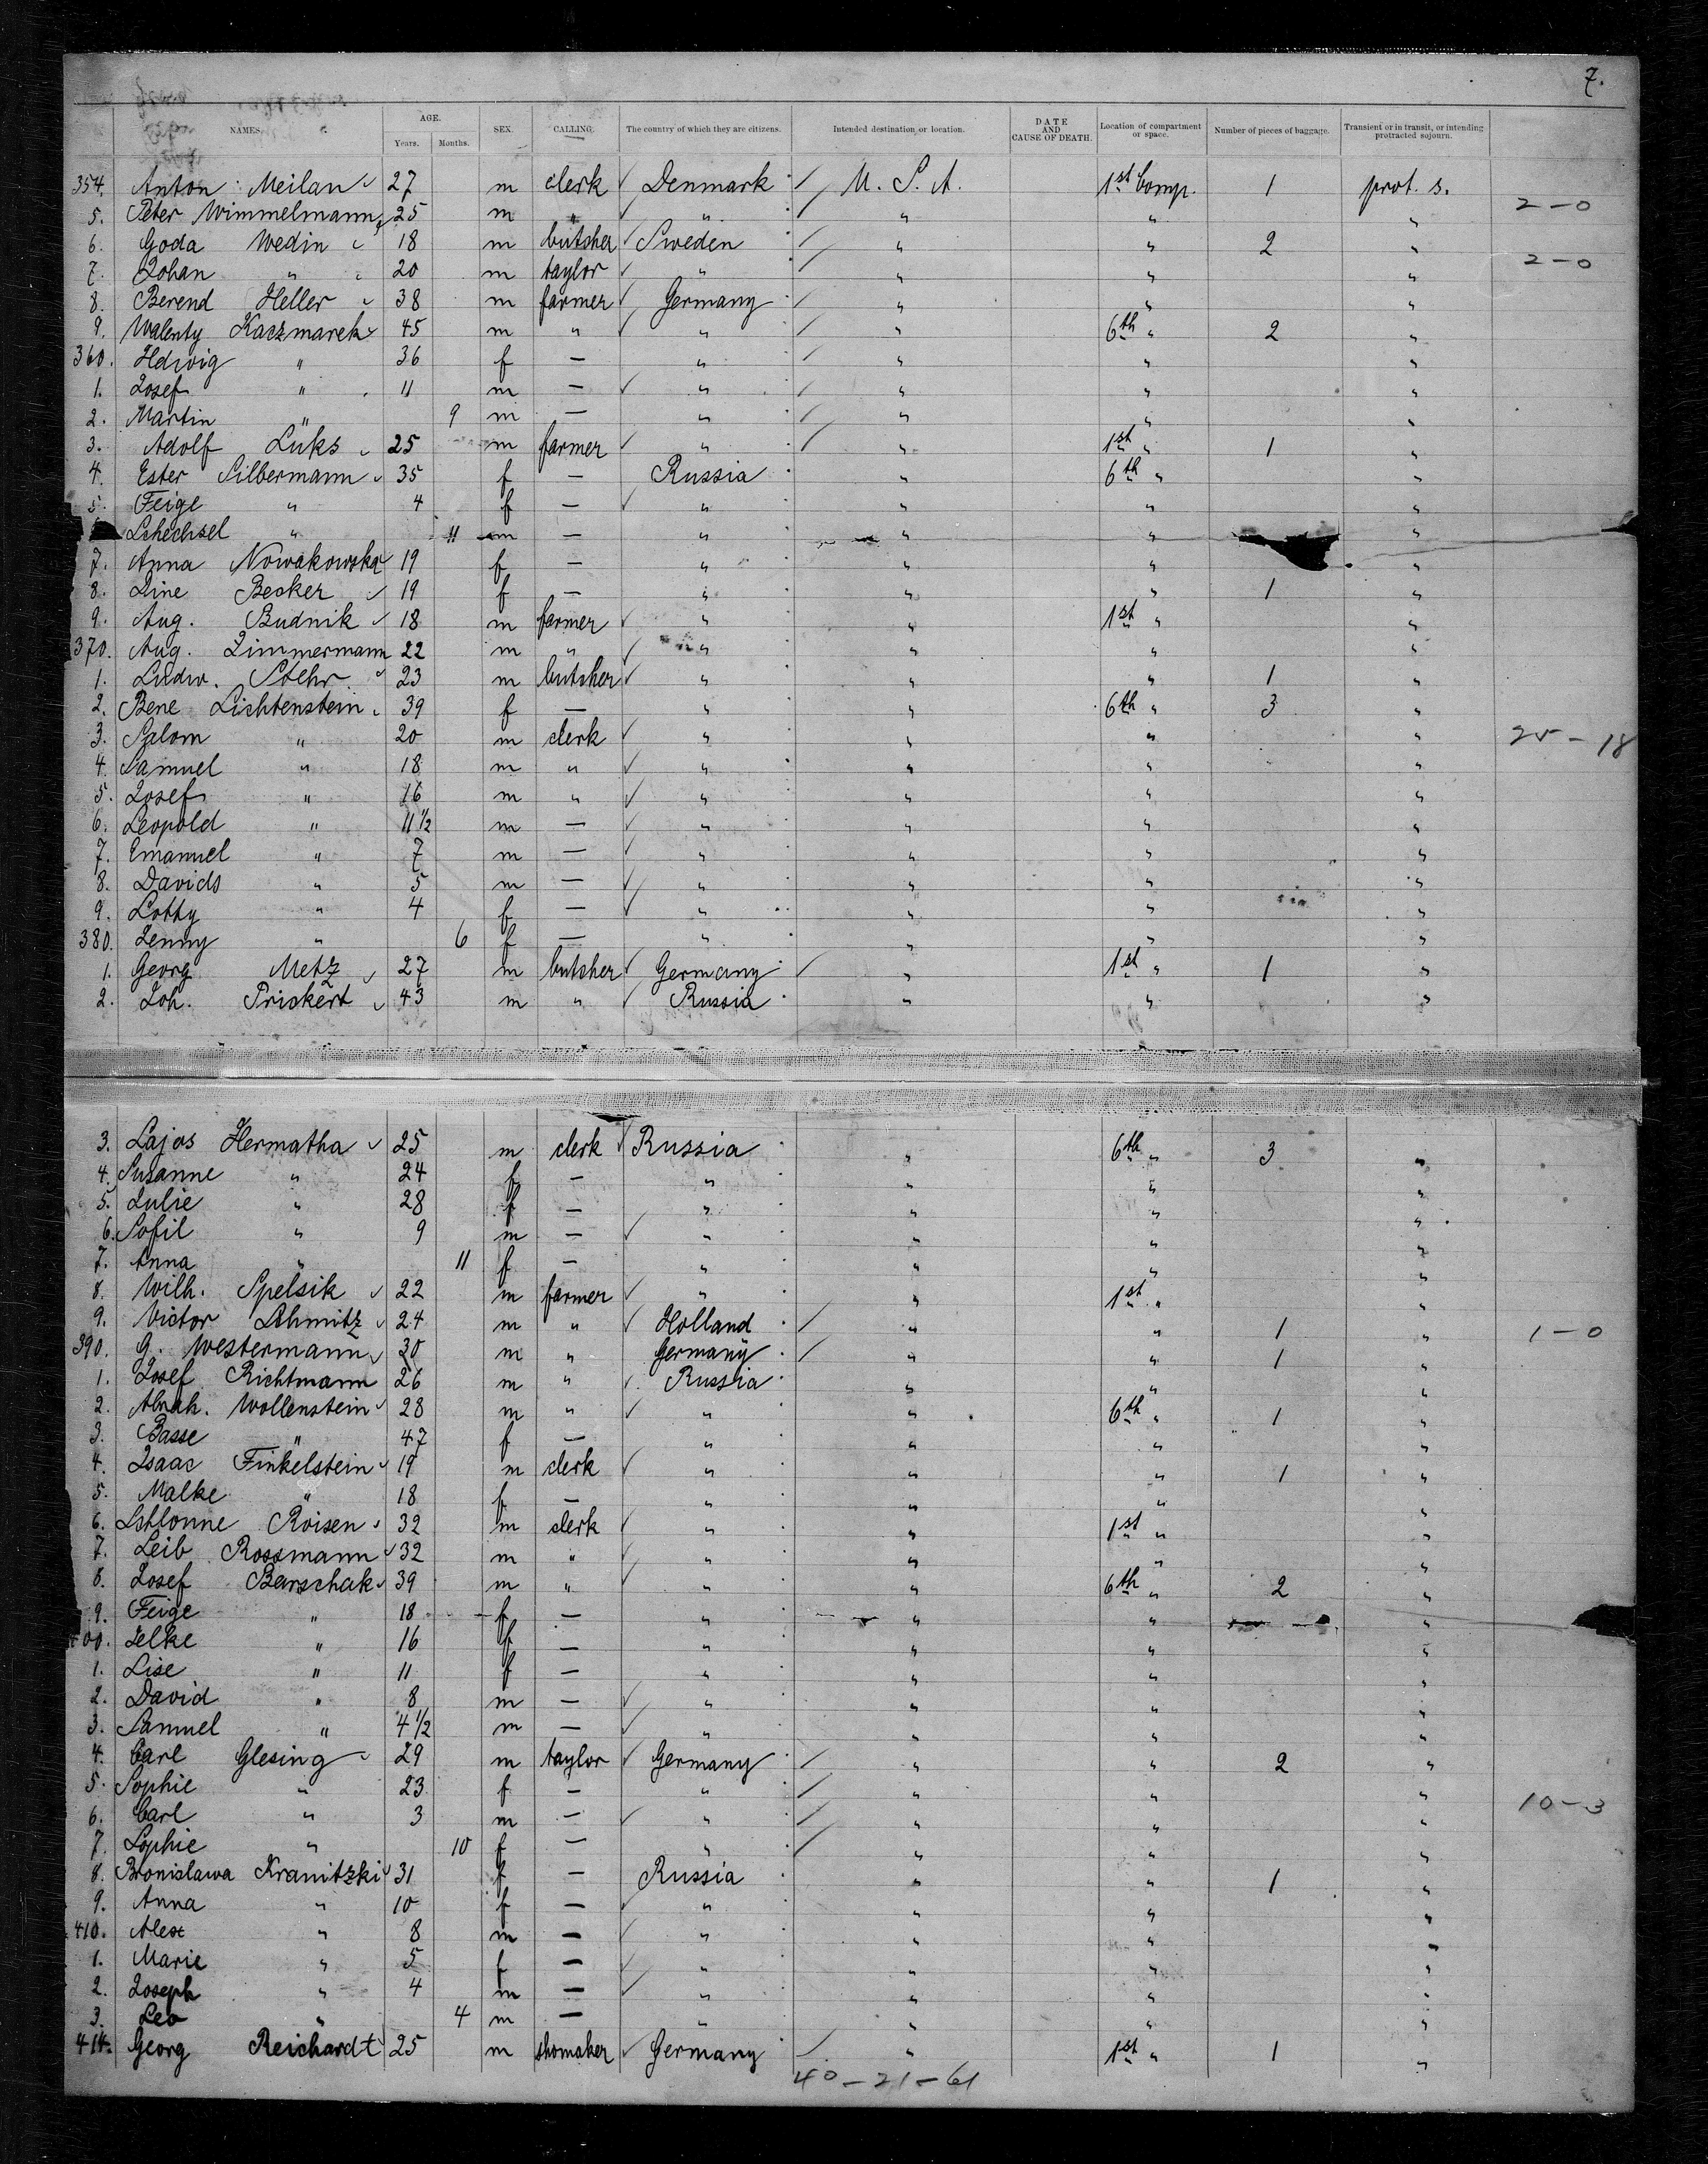 7.
NAMES. AGE. Years. Months. SEX. CALLING. The country of which they are citizens. Intended destination or location. DATE AND CAUSE OF DEATH. Location of compartment or space. Number of pieces of baggage. Transient or in transit, or intending protracted sojourn.
354. Anton Meilan 27 m clerk Denmark U. S. A. 1st Comp. 1 prot. s.
5. Peter Wimmelmann 25 m " " " " " 2-0
6. Goda Wedin 18 m butsher Sweden " " 2 "
7. Johan " 20 m taylor " " " " 2-0
8. Berend Heller 38 m farmer Germany " " "
9. Walenty Kaczmarek 45 m " " " 6th " 2 "
360. Hdwig " 36 f — " " " "
1. Josef " 11 m — " " " "
2. Martin " 9 m — " " " "
3. Adolf Luks 25 m farmer " " 1st " 1 "
4. Ester Silbermann 35 f — Russia " 6th " "
5. Feige " 4 f — " " " "
Schechsel " 11 m — " " " "
7. Anna Nowakowska 19 f — " " " "
8. Line Becker 19 f — " " " 1 "
9. Aug. Budnik 18 m farmer " " 1st " "
370. Aug. Zimmermann 22 m " " " " "
1. Ludw. Stehr 23 m butsher " " " 1 "
2. Bene Lichtenstein 39 f — " " 6th " 3 "
3. Salom " 20 m clerk " " " " 25-18
4. Samuel " 18 m " " " " "
5. Josef " 16 m " " " " "
6. Leopold " 11 1/2 m — " " " "
7. Emanuel " 7 m — " " " "
8. Davids " 5 m — " " " "
9. Lotty " 4 f — " " " "
380. Jenny " 6 f — " " " "
1. Georg Metz 27 m butsher Germany " 1st " 1 "
2. Joh. Prickert 43 m " Russia " " "
3. Lajos Hermatha 25 m clerk Russia " 6th " 3 "
4. Susanne " 24 f — " " " "
5. Julie " 28 f — " " " "
6. Sofil " 9 m — " " " "
7. Anna " 11 f — " " " "
8. Wilh. Spelsik 22 m farmer " " 1st " "
9. Victor Schmitz 24 m " Holland " " 1 " 1-0
390. G. Westermann 30 m " Germany " " 1 "
1. Josef Richtmann 26 m " Russia " " "
2. Abrah. Wollenstein 28 m " " " 6th " 1 "
3. Basse " 47 f — " " " "
4. Isaac Finkelstein 19 m clerk " " " 1 "
5. Malke " 18 f — " " " "
6. Schlonne Roisen 32 m clerk " " 1st " "
7. Leib Rossmann 32 m " " " " "
8. Josef Barschak 39 m " " " 6th " 2 "
9. Feige " 18 f — " " " "
400. Jelke " 16 f — " " " "
1. Lise " 11 f — " " " "
2. David " 8 m — " " " "
3. Samuel " 4 1/2 m — " " " "
4. Carl Glesing 29 m taylor Germany " " 2 "
5. Sophie " 23 f — " " " "
6. Carl " 3 m — " " " " 10-3
7. Sophie " 10 f — " " " "
8. Bronislawa Kranitzki 31 f — Russia " " 1 "
9. Anna " 10 f — " " " "
410. Alex " 8 m — " " " "
1. Marie " 5 f — " " " "
2. Joseph " 4 m — " " " "
3. Leo " 4 m — " " " "
414. Georg Reichardt 25 m shomaker Germany " 1st " 1 "
40-21-61